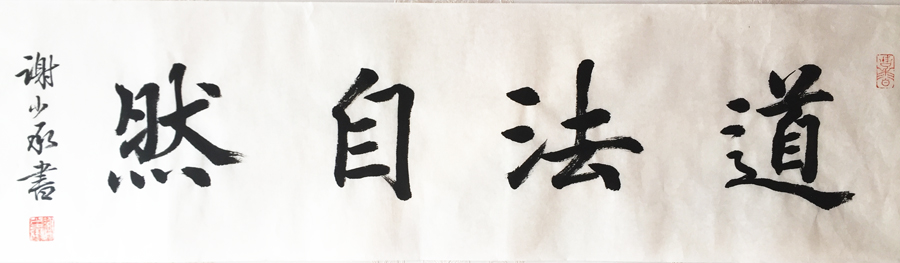 道法自然
谢少承書